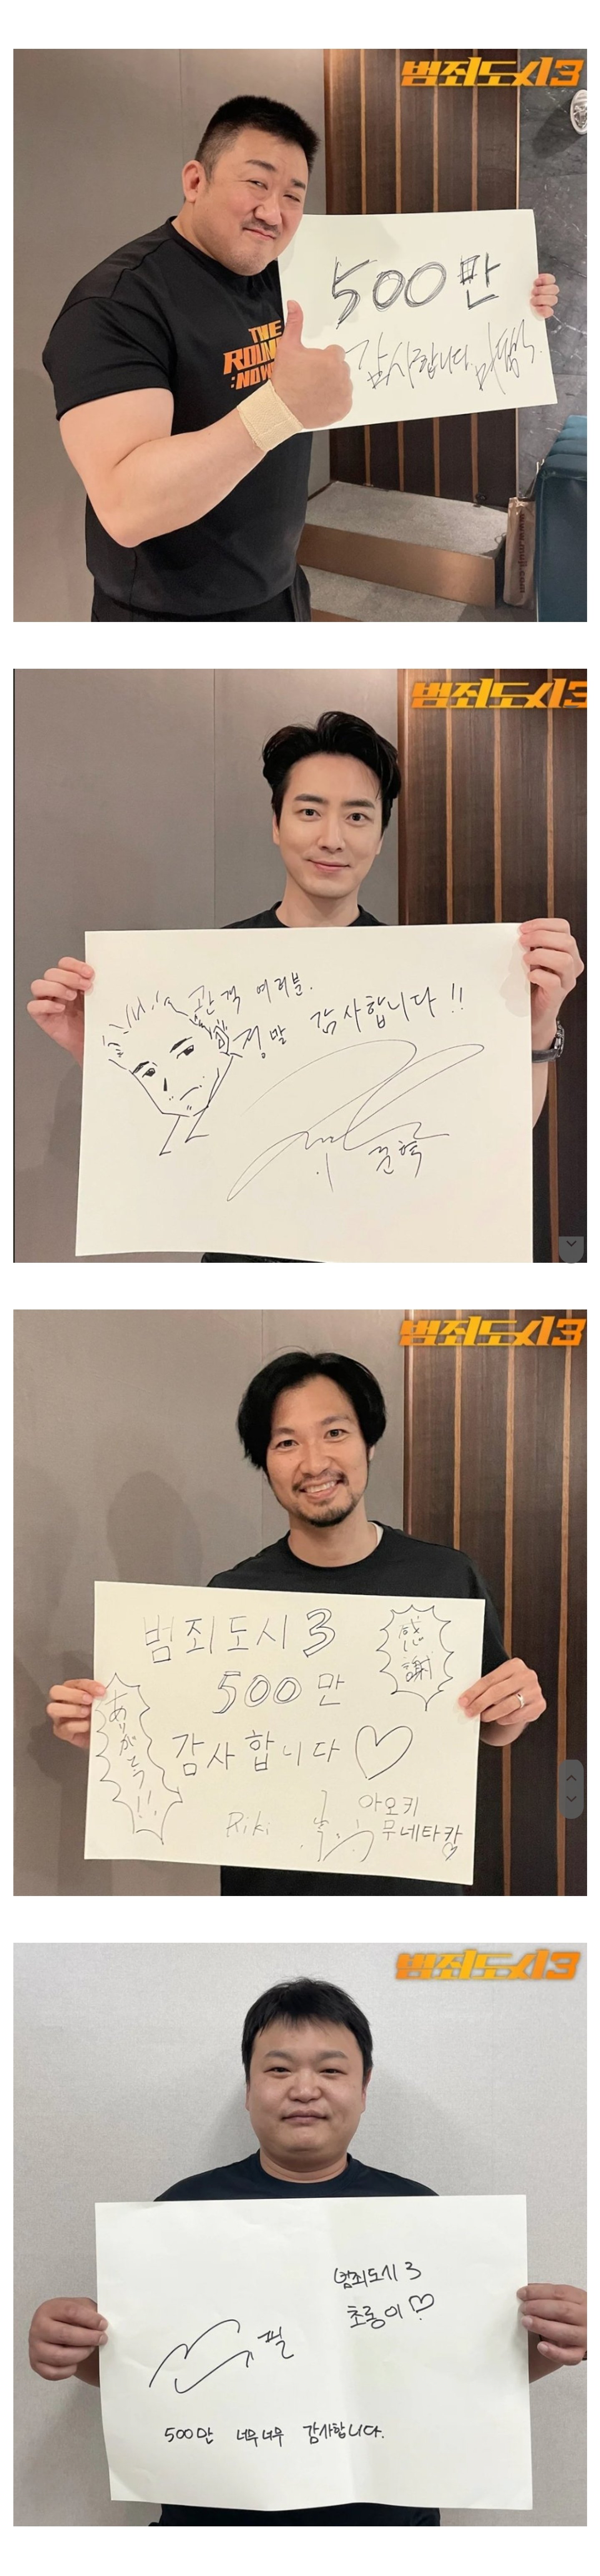 범죄도시3
THE
ROUN
:NOW
500만
감사합니다. 마동석.
www.muji.com
범죄도시3
관객 여러분.
정말 감사합니다!!
준혁
범죄도시3
범죄도시3
500만
감사합니다♡
感謝
ありがとう!!
Riki
아오키
무네타카
범죄도시3
범죄도시3
초롱이♡
필
500만 너무너무 감사합니다.